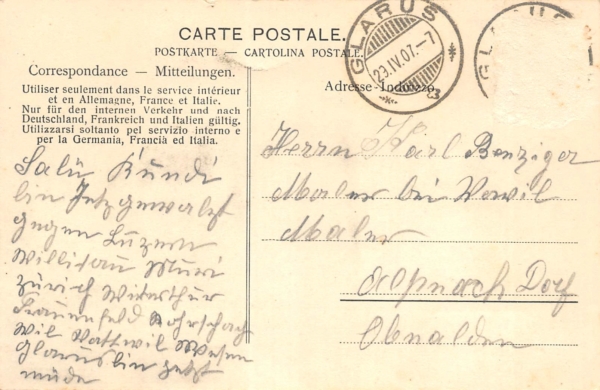 CARTE POSTALE.
POSTKARTE — CARTOLINA POSTALE
GLARUS
23.IV.07.–7
GLARUS
Correspondance — Mitteilungen.
Adresse-Indirizzo
Utiliser seulement dans le service intérieur
et en Allemagne, France et Italie.
Nur für den internen Verkehr und nach
Deutschland, Frankreich und Italien gültig.
Utilizzarsi soltanto pel servizio interno e
per la Germania, Francià ed Italia.
Salü Kundi
bin Jetz
gegen Luzern
Willisau Muri
Zürich Winterthur
Frauenfeld Rohrschach
Wil Wattwil Wesen
Glarus bin jetzt
müde
Herrn Karl Benziger
Maler bei
Maler
Alpnach Dorf
Obwalden